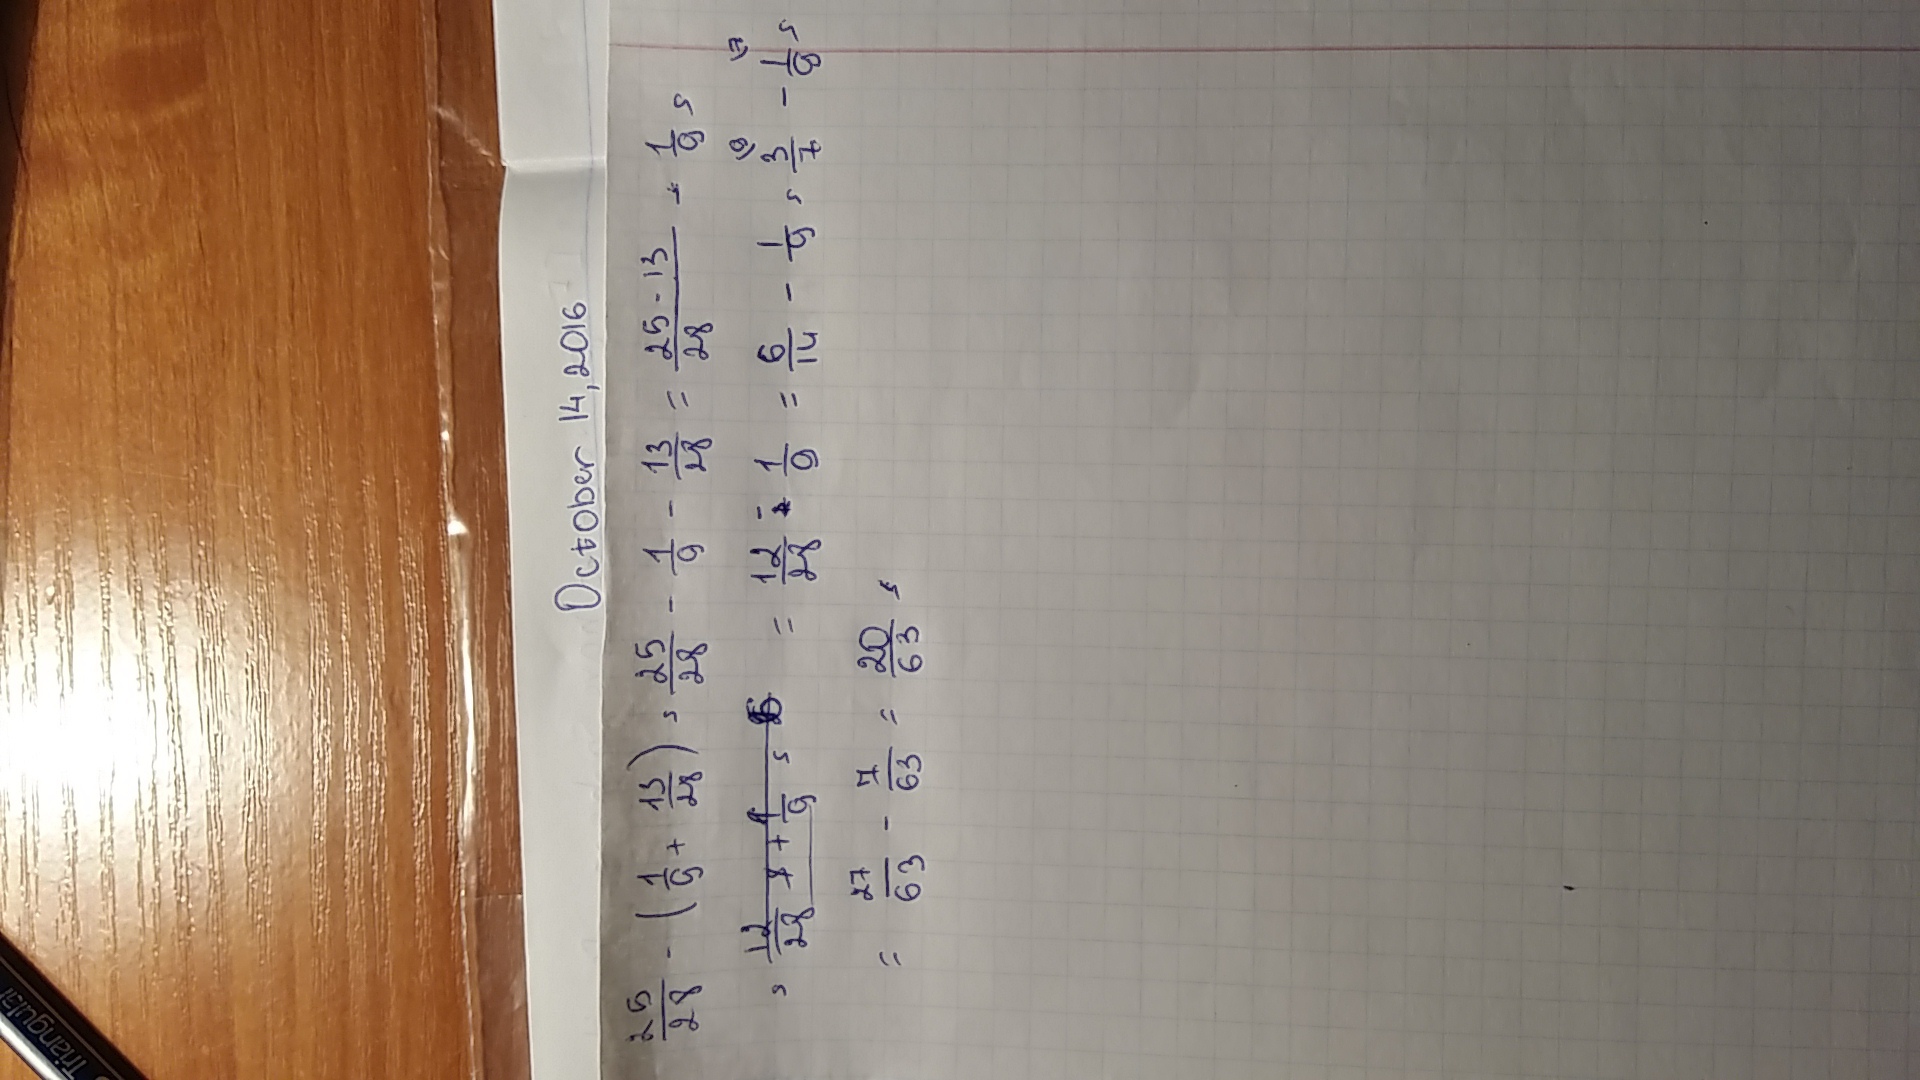 October 14, 2016
25/28 - (1/9 + 13/28) = 25/28 - 1/9 - 13/28 = (25 - 13)/28 - 1/9 =
= 12/28 + 1/9 = = 12/28 - 1/9 = 6/14 - 1/9 = 3/7 9) - 1/9 7) =
= 27/63 - 7/63 = 20/63
Triangular